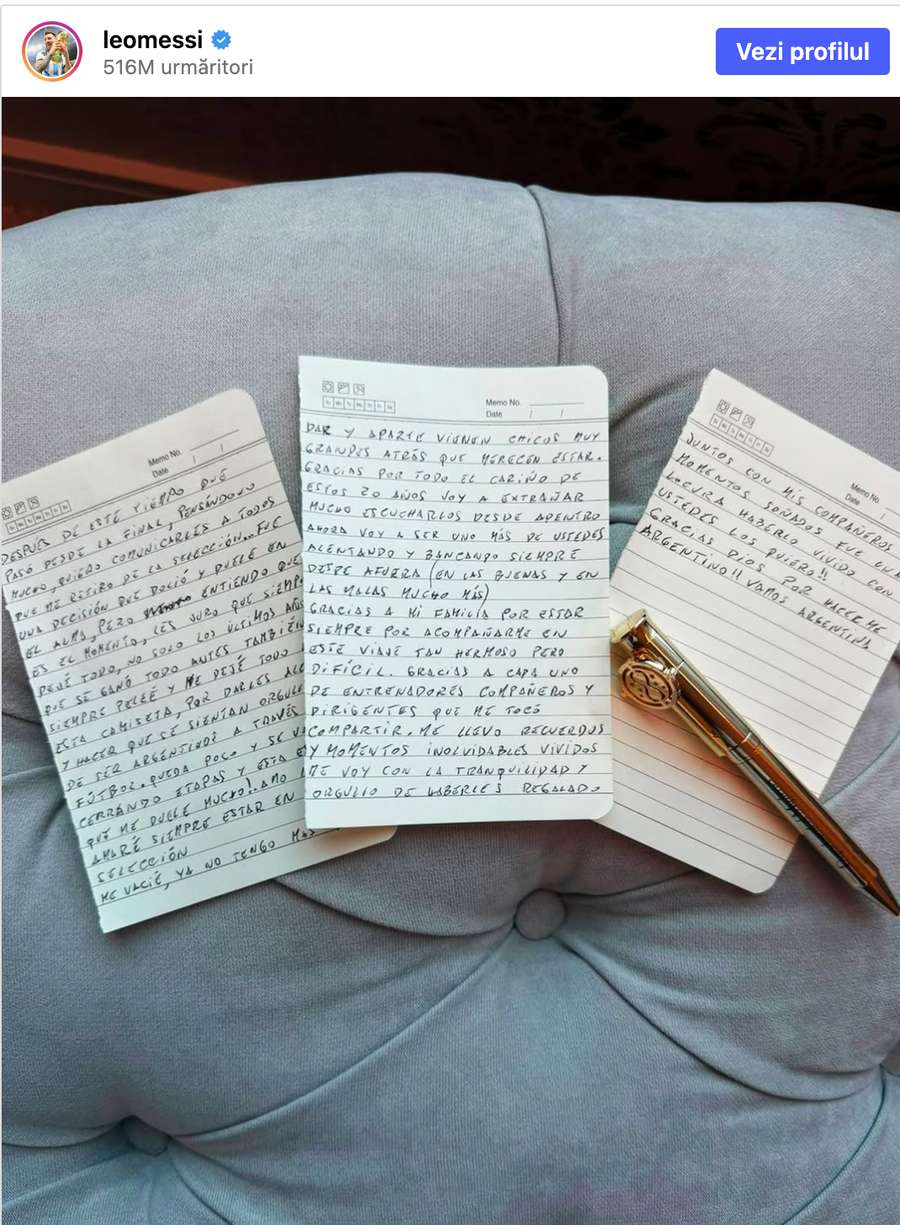 leomessi
516M urmăritori
Vezi profilul
Memo No.
Date / /
DESPUÉS DE ESTE TIEMPO QUE
PASÓ DESDE LA FINAL, PENSÁNDOLO
MUCHO, QUIERO COMUNICARLES A TODOS
QUE ME RETIRO DE LA SELECCIÓN... FUE
UNA DECISIÓN QUE DOLIÓ Y DUELE EN
EL ALMA, PERO ENTIENDO QUE
ES EL MOMENTO, LES JURO QUE SIEMP
DEJÉ TODO, NO SOLO LOS ÚLTIMOS AÑOS
QUE SE GANÓ TODO ANTES TAMBIÉN
SIEMPRE PELEÉ Y ME DEJÉ TODO
ESTA CAMISETA, POR DARLES ALE
Y HACER QUE SE SIENTAN ORGULL
DE SER ARGENTINOS A TRAVÉS
FÚTBOL. QUEDA POCO Y SE VA
CERRANDO ETAPAS Y ESTA E
QUE ME DUELE MUCHO!. AMO L
AMARÉ SIEMPRE ESTAR EN
SELECCIÓN
ME VACIÉ, YA NO TENGO MÁS
Su Mo Tu We Th Fr Sa
Memo No.
Date / /
DAR Y APARTE VIENEN CHICOS MUY
GRANDES ATRÁS QUE MERECEN ESTAR.
GRACIAS POR TODO EL CARIÑO DE
ESTOS 20 AÑOS VOY A EXTRAÑAR
MUCHO ESCUCHARLOS DESDE ADENTRO
AHORA VOY A SER UNO MÁS DE USTEDES
ALENTANDO Y BANCANDO SIEMPRE
DESDE AFUERA (EN LAS BUENAS Y EN
LAS MALAS MUCHO MÁS)
GRACIAS A MI FAMILIA POR ESTAR
SIEMPRE POR ACOMPAÑARME EN
ESTE VIAJE TAN HERMOSO PERO
DIFÍCIL. GRACIAS A CADA UNO
DE ENTRENADORES COMPAÑEROS Y
DIRIGENTES QUE ME TOCÓ
COMPARTIR. ME LLEVO RECUERDOS
Y MOMENTOS INOLVIDABLES VIVIDOS
ME VOY CON LA TRANQUILIDAD Y
ORGULLO DE HABERLES REGALADO
Memo No.
Date /
JUNTOS CON MIS COMPAÑEROS
MOMENTOS SOÑADOS FUE UNA
LOCURA HABERLO VIVIDO CON
USTEDES LOS QUIERO!!
GRACIAS DIOS POR HACERME
ARGENTINO!! VAMOS ARGENTINA